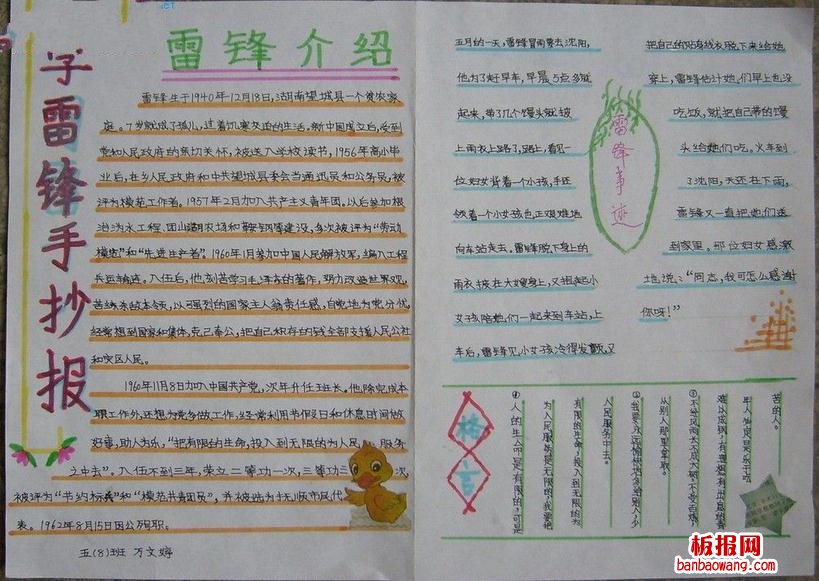 学雷锋手抄报
雷锋介绍
雷锋生于1940年12月18日，湖南望城县一个贫农家
庭。7岁就成了孤儿，过着饥寒交迫的生活。新中国成立后，受到
党和人民政府的亲切关怀，被送入学校读书，1956年高小毕
业后，在乡人民政府和中共望城县委会当通迅员和公务员，被
评为模范工作者。1957年2月加入共产主义青年团。以后参加根
治沩水工程、团山湖农场和鞍钢等建设，多次被评为“劳动
模范”和“先进生产者”。1960年1月参加中国人民解放军，编入工程
兵运输连。入伍后，他刻苦学习毛泽东的著作，努力改造世界观，
苦练杀敌本领，以强烈的国家主人翁责任感，自觉地为党分忧，
经常想到国家和集体，克己奉公，把自己积存的钱全部支援人民公社
和灾区人民。
1960年11月8日加入中国共产党，次年升任班长。他除完成本
职工作外，还想为党多做工作，经常利用节假日和休息时间做
好事，助人为乐，“把有限的生命，投入到无限的为人民 服务
之中去”。入伍不到三年，荣立二等功一次，三等功三 次，
被评为“节约标兵”和“模范共青团员”，并被选为抚顺市民代
表。1962年8月15日因公殉职。
五(8)班 万文婷
雷锋事迹
五月的一天，雷锋冒雨要去沈阳，
他为了赶早车，早晨5点多就
起来，带了几个馒头就披
上雨衣上路了，路上，看见一
位妇女背着一个小孩，手还
领着一个小女孩也正艰难地
向车站走去。雷锋脱下身上的
雨衣披在大嫂身上，又抱起小
女孩陪她们一起来到车站，上
车后，雷锋见小女孩冷得发颤，又
把自己的贴身线衣脱下来给她
穿上，雷锋估计她们早上也没
吃饭，就把自己带的馒
头给她们吃。火车到
了沈阳，天还在下雨，
雷锋又一直把她们送
到家里。那位妇女感激
地说：“同志，我可怎么感谢
你呀！”
格言
苦的人。
年人
难以成钢，有理想有出息的青
①不经风雨长不成大树，不受百炼
从别人那里拿取。
②我要永远愉快地多给别人，少
人民服务中去。
有限的生命，投入到无限的为
为人民服务是无限的，我要把
④人的生命是有限的，可是
板报网
banbaowang.com